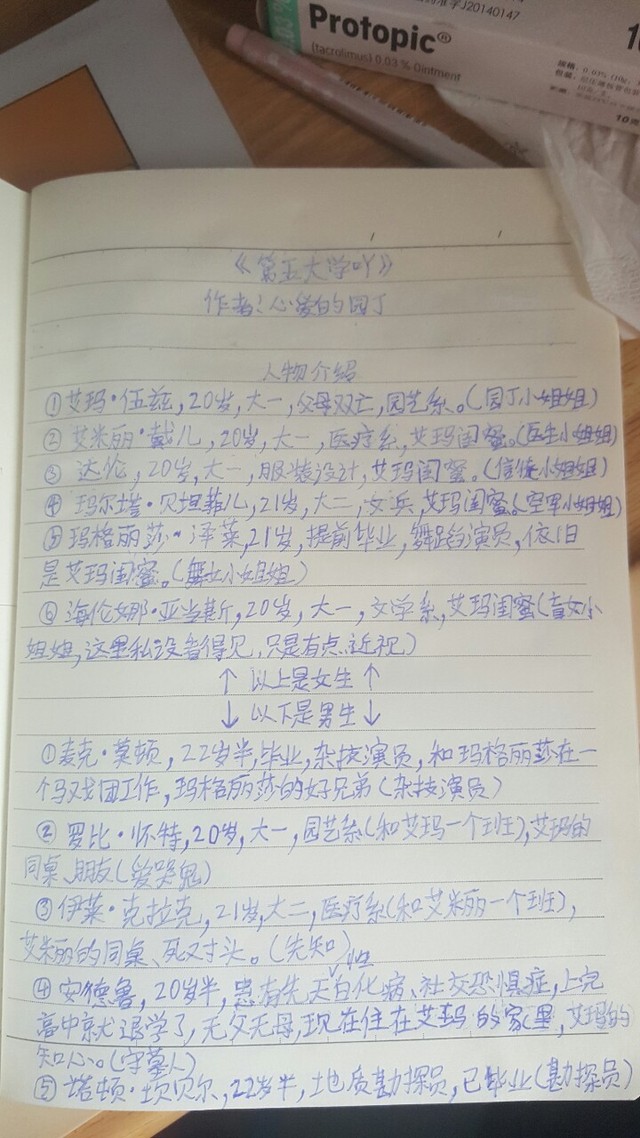 准字J20140147
Protopic®
(tacrolimus) 0.03% Ointment
《第五大学吖》
作者:心爱的园丁
人物介绍
①艾玛·伍兹,20岁,大一,父母双亡,园艺系。(园丁小姐姐)
②艾米丽·戴儿,20岁,大一,医疗系,艾玛闺蜜。(医生小姐姐)
③达伦,20岁,大一,服装设计,艾玛闺蜜。(信徒小姐姐)
④玛尔塔·贝坦菲儿,21岁,大二,女兵,艾玛闺蜜。(空军小姐姐)
⑤玛格丽莎·泽莱,21岁,提前毕业,舞蹈演员,依旧
是艾玛闺蜜。(舞女小姐姐)
⑥海伦娜·亚当斯,20岁,大一,文学系,艾玛闺蜜(盲女小
姐姐,这里私设看得见,只是有点近视)
↑ 以上是女生 ↑
↓ 以下是男生 ↓
①麦克·莫顿,22岁半,毕业,杂技演员,和玛格丽莎在一
个马戏团工作,玛格丽莎的好兄弟(杂技演员)
②罗比·怀特,20岁,大一,园艺系(和艾玛一个班),艾玛的
同桌、朋友(爱哭鬼)
③伊莱·克拉克,21岁,大二,医疗系(和艾米丽一个班),
艾米丽的同桌、死对头。(先知)
④安德鲁,20岁半,患有先天性白化病、社交恐惧症,上完
高中就退学了,无父无母,现在住在艾玛的家里,艾玛的
知心。(守墓人)
⑤塔顿·坎贝尔,22岁半,地质勘探员,已毕业(勘探员)